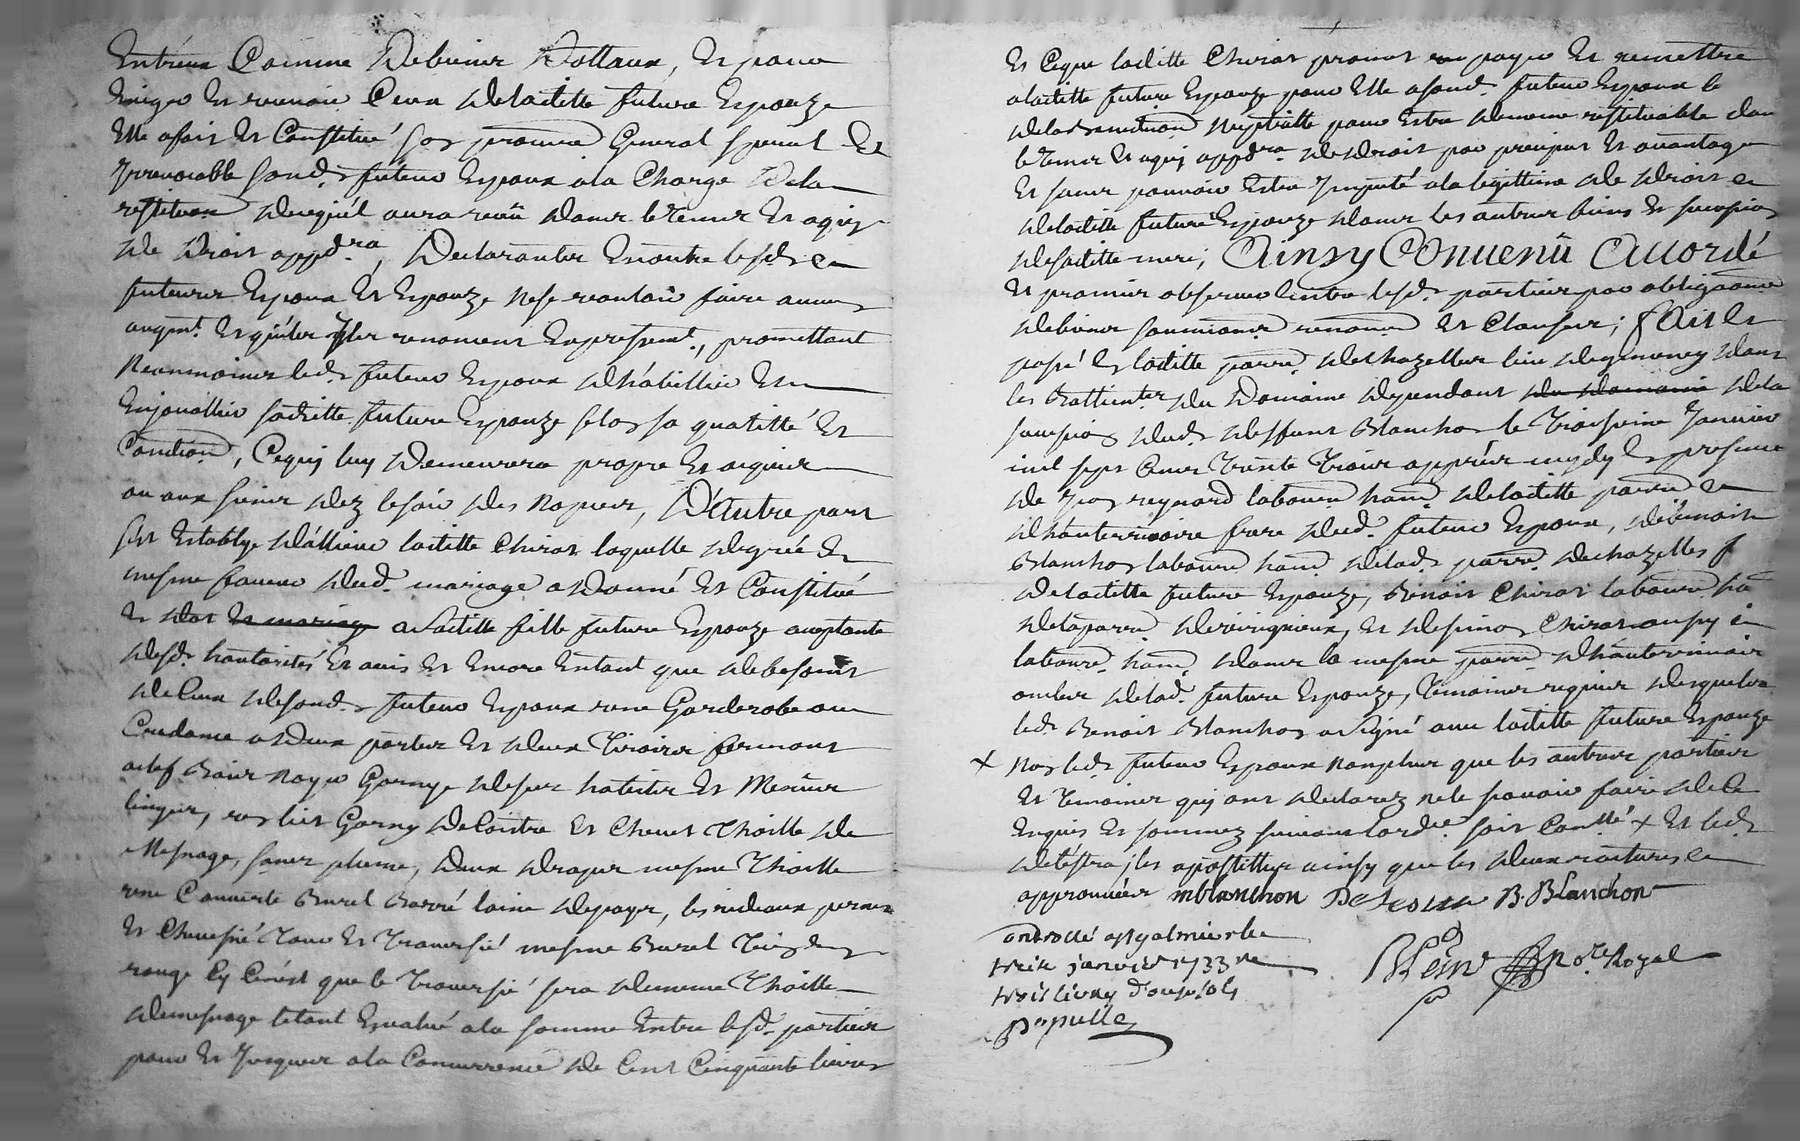 Entréux Comme De biens Dottaux, Et pour
Exiger Et recevoir Ceux de laditte future Espouze
Elle a fait Et Constitué son procureur General special Et
Irrevocable sond. futeur Espoux a la Charge De la
restitution de ce qu'il aura receü dans le temps Et a qui
de Droit appd.ra, Declarants En outre lesd.
futeurs Espoux Et Espouze ne se vouloir faire aucun
augmt. Et y renoncent Expressemt., promettant
Neanmoins led. futeur Espoux d'habillier Et
Enjouallier saditte future Espouze selon sa qualitté Et
Condition, Ce qui luy demeurera propre Et acquis
ou aux siens dez le soir des Nopces, D'Autre part
s'est Establye d'allieur laditte Chirat laquelle de gré Et
mesme faveur dud. mariage a Donné Et Constitué
En dot en mariage a laditte fille future Espouze acceptante
desd. hautorités Et avis Et Encore Entant que de besoint
de Ceux de sond. futeur Espoux une Garderobe ou
Credance a Deux portes Et deux Tiroirs fermant
a clef Bois noyer Garnye de ses habits Et Menus
linges, un lict Garny De Coitre Et Chevet Thoille de
Mesnage, sans plume, Deux draps mesme Thoille
une Couverte Burel Barré laine de pays, les rideaux
Et Traversié mesme Burel
rouge Et que le Traversié sera de mesme Thoille
de mesnage le tout Evalué a la somme Entre lesd. parties
pour Et Jusques a la Concurrence de Cent Cinquante livres
Et Ce que laditte Chirat promet payer Et remettre
a laditte future Espouze pour Elle a sond. futeur Espoux le
de la benediction Nuptialle pour Estre de mesme restituable dans
le temps Et a qui appd.ra de Droit par preciput Et avantage
Et sans pouvoir Estre Imputé a la legittime de Droit
de laditte future Espouze dans les autres biens Et succession
de saditte mere, Ainsy Convenû Accordé
Et promis observer Entre lesd. parties par obligations
de biens soumissions renon. Et Clauses; fait Et
passé En laditte parr. de Chazelles lieu de dans
les Battiments du Domaine dependant du domaine de la
succession dud. deffunt Blanchon le Troiseime Janvier
mil sept Cens Trente Trois apprés midy En presence
de Jean reynard laboureur habt. de laditte parr.
d'hauterivoire frere dud. futeur Espoux, Benoist
Blanchon laboureur habt. de lad. parr. de Chazelles f
de laditte future Espouze, Benoist Chirat laboureur hab
de la parr. de virigneux, Et Chirat aussy
laboure. habt. dans la mesme parr. d'hauterivoire
oncles de lad. future Espouze, Temoins requis desquels
led. Benoist Blanchon a signé avec laditte future Espouze
x Non led. futeur Espoux non plus que les autres parties
Et Temoins qui ont declarez ne le scavoir faire de Ce
Enquis Et sommez suivant l'ord.ce soit Con.llé x Et led.
De lestra, les apostilles ainsy que les deux ratures
approuvées mblanchon B. Blanchon
Controllé a St galmier le
treize janvier 1733
trois livres
no.re Royal